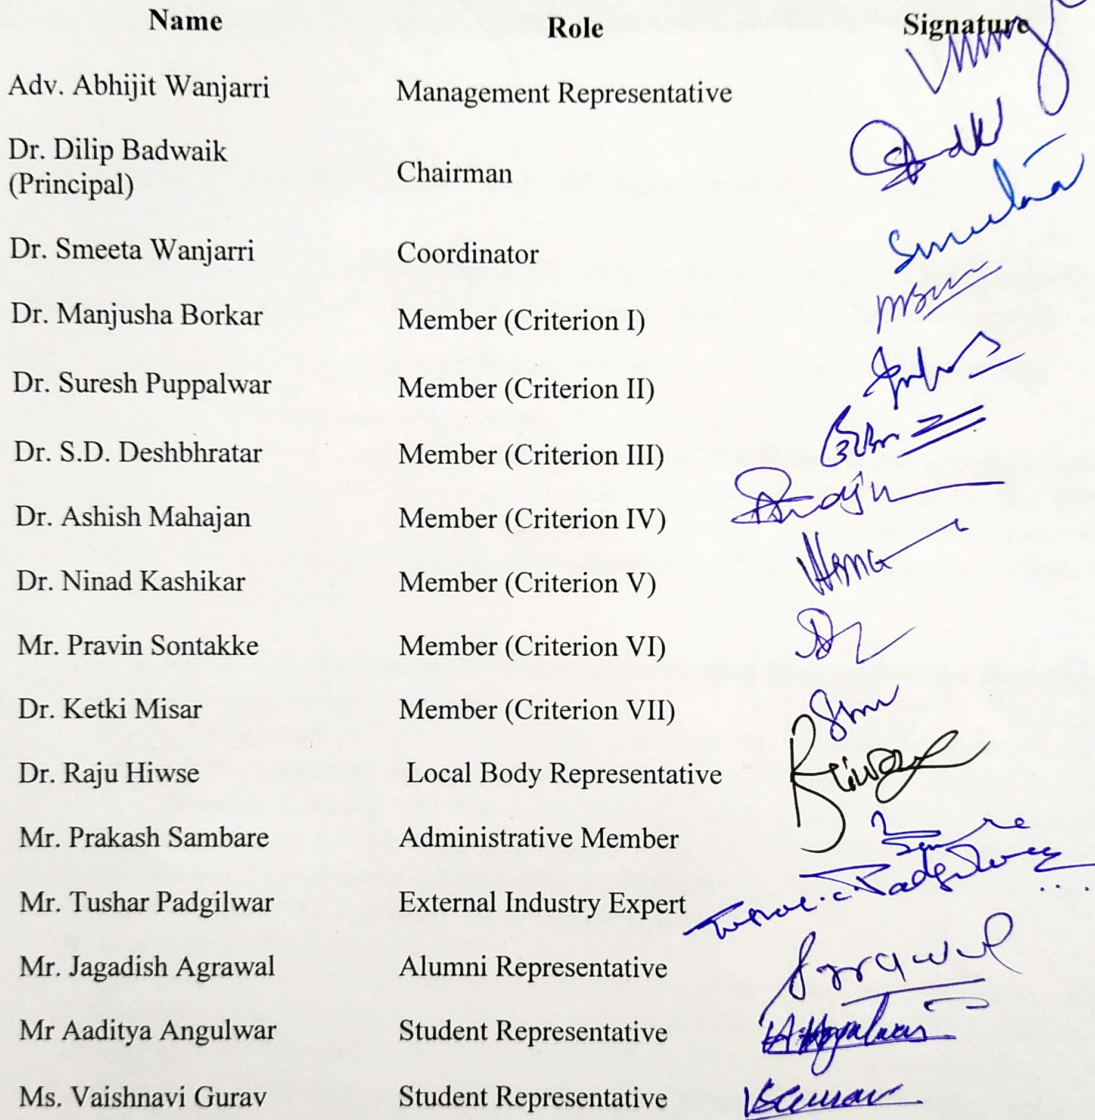 Name Role Signature
Adv. Abhijit Wanjarri Management Representative
Dr. Dilip Badwaik
(Principal) Chairman
Dr. Smeeta Wanjarri Coordinator
Dr. Manjusha Borkar Member (Criterion I)
Dr. Suresh Puppalwar Member (Criterion II)
Dr. S.D. Deshbhratar Member (Criterion III)
Dr. Ashish Mahajan Member (Criterion IV)
Dr. Ninad Kashikar Member (Criterion V)
Mr. Pravin Sontakke Member (Criterion VI)
Dr. Ketki Misar Member (Criterion VII)
Dr. Raju Hiwse Local Body Representative
Mr. Prakash Sambare Administrative Member
Mr. Tushar Padgilwar External Industry Expert
Mr. Jagadish Agrawal Alumni Representative
Mr Aaditya Angulwar Student Representative
Ms. Vaishnavi Gurav Student Representative